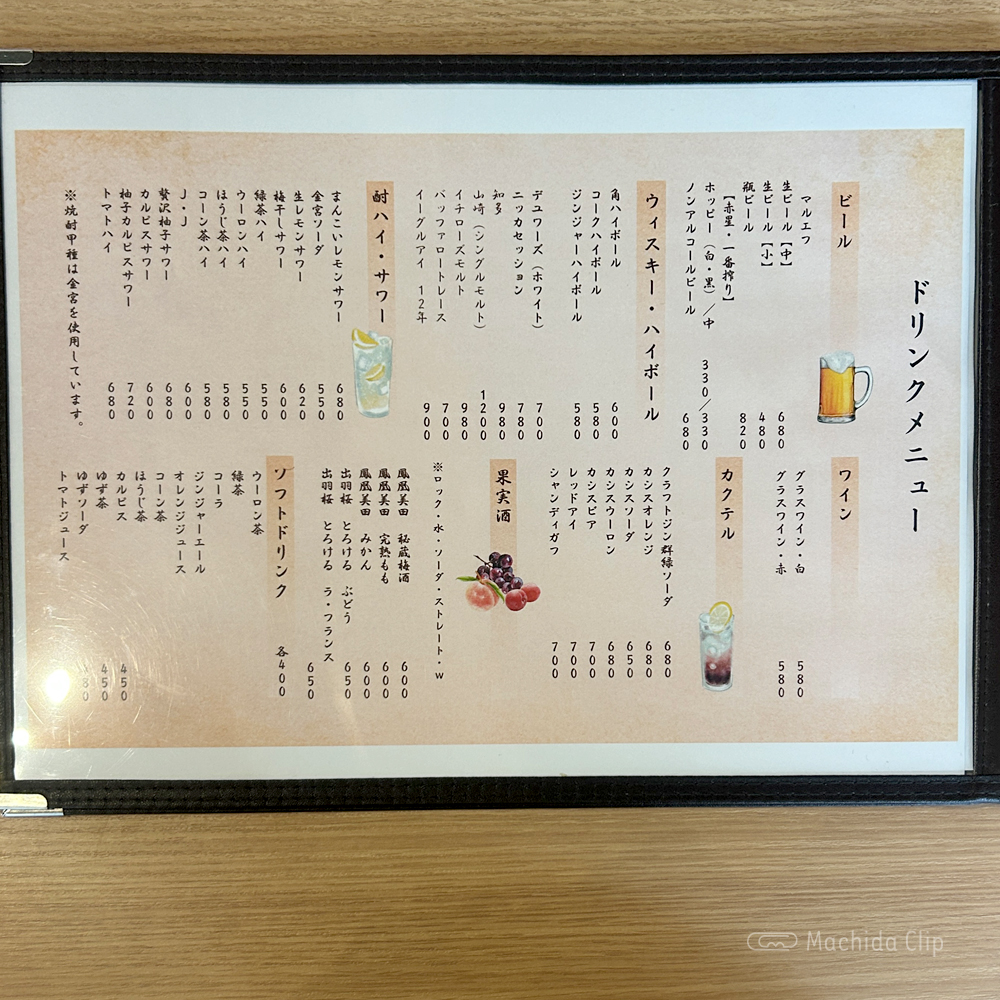 ドリンクメニュー
ビール
マルエフ
生ビール【中】 680
生ビール【小】 480
瓶ビール 820
【赤星・一番搾り】
ホッピー（白・黒）／中 330／330
ノンアルコールビール 680
ウィスキー・ハイボール
角ハイボール 600
コークハイボール 580
ジンジャーハイボール 580
デュワーズ（ホワイト） 700
ニッカセッション 780
知多 980
山崎（シングルモルト） 1200
イチローズモルト 980
バッファロートレース 700
イーグルアイ 12年 900
酎ハイ・サワー
まんこいレモンサワー 680
金宮ソーダ 550
生レモンサワー 620
梅干しサワー 600
緑茶ハイ 550
ウーロンハイ 550
ほうじ茶ハイ 580
コーン茶ハイ 580
J・J 600
贅沢柚子サワー 680
カルピスサワー 600
柚子カルピスサワー 720
トマトハイ 680
※焼酎甲種は金宮を使用しています。
ワイン
グラスワイン・白 580
グラスワイン・赤 580
カクテル
クラフトジン群緑ソーダ 680
カシスオレンジ 680
カシスソーダ 650
カシスウーロン 680
カシスビア 700
レッドアイ 700
シャンディガフ 700
果実酒
※ロック・水・ソーダ・ストレート・w
鳳凰美田 秘蔵梅酒 600
鳳凰美田 完熟もも 600
鳳凰美田 みかん 600
出羽桜 とろける ぶどう 650
出羽桜 とろける ラ・フランス 650
ソフトドリンク 各400
ウーロン茶
緑茶
コーラ
ジンジャーエール
オレンジジュース
コーン茶
ほうじ茶
カルピス 450
ゆず茶 450
ゆずソーダ
トマトジュース
Machida Clip